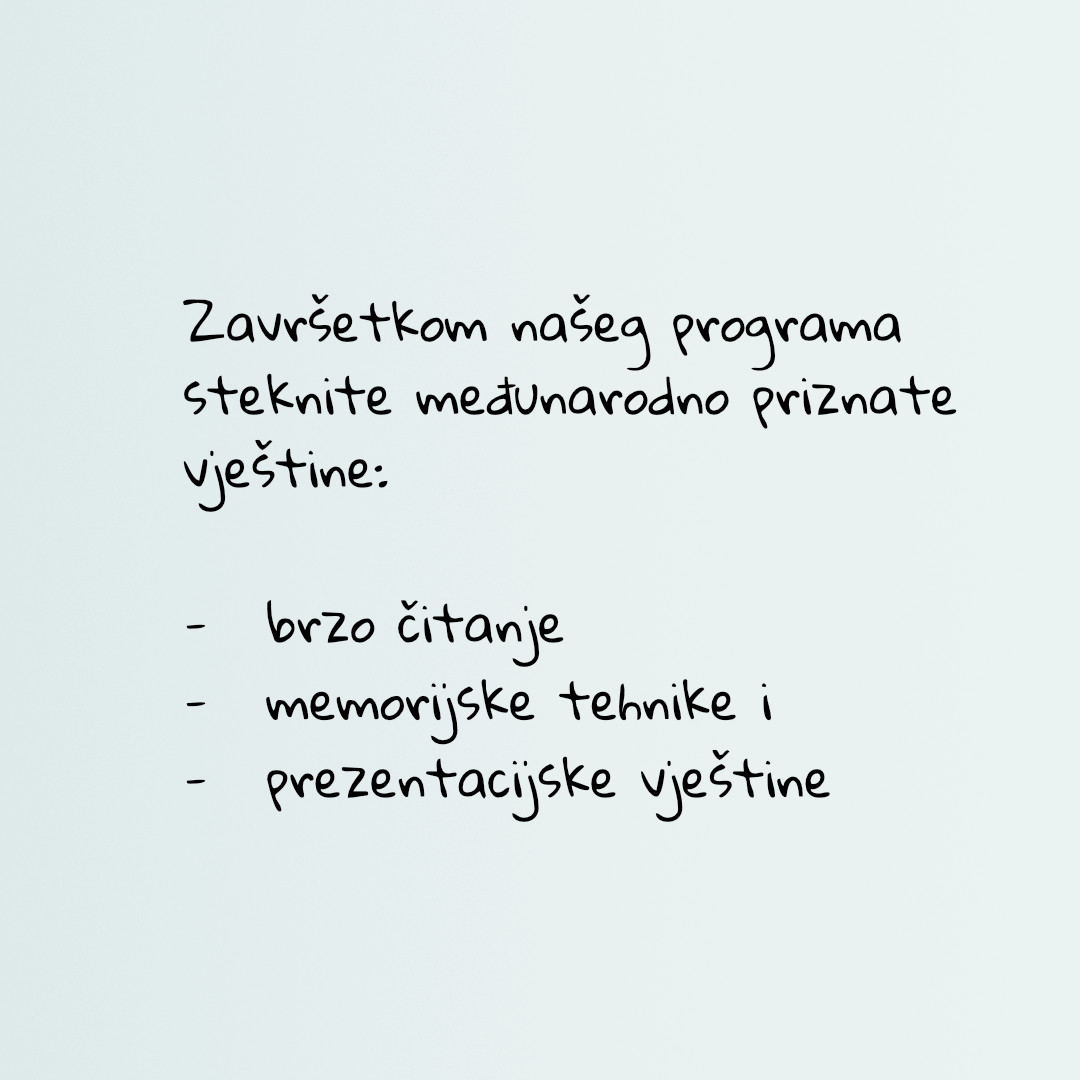 Završetkom našeg programa
steknite međunarodno priznate
vještine:
- brzo čitanje
- memorijske tehnike i
- prezentacijske vještine